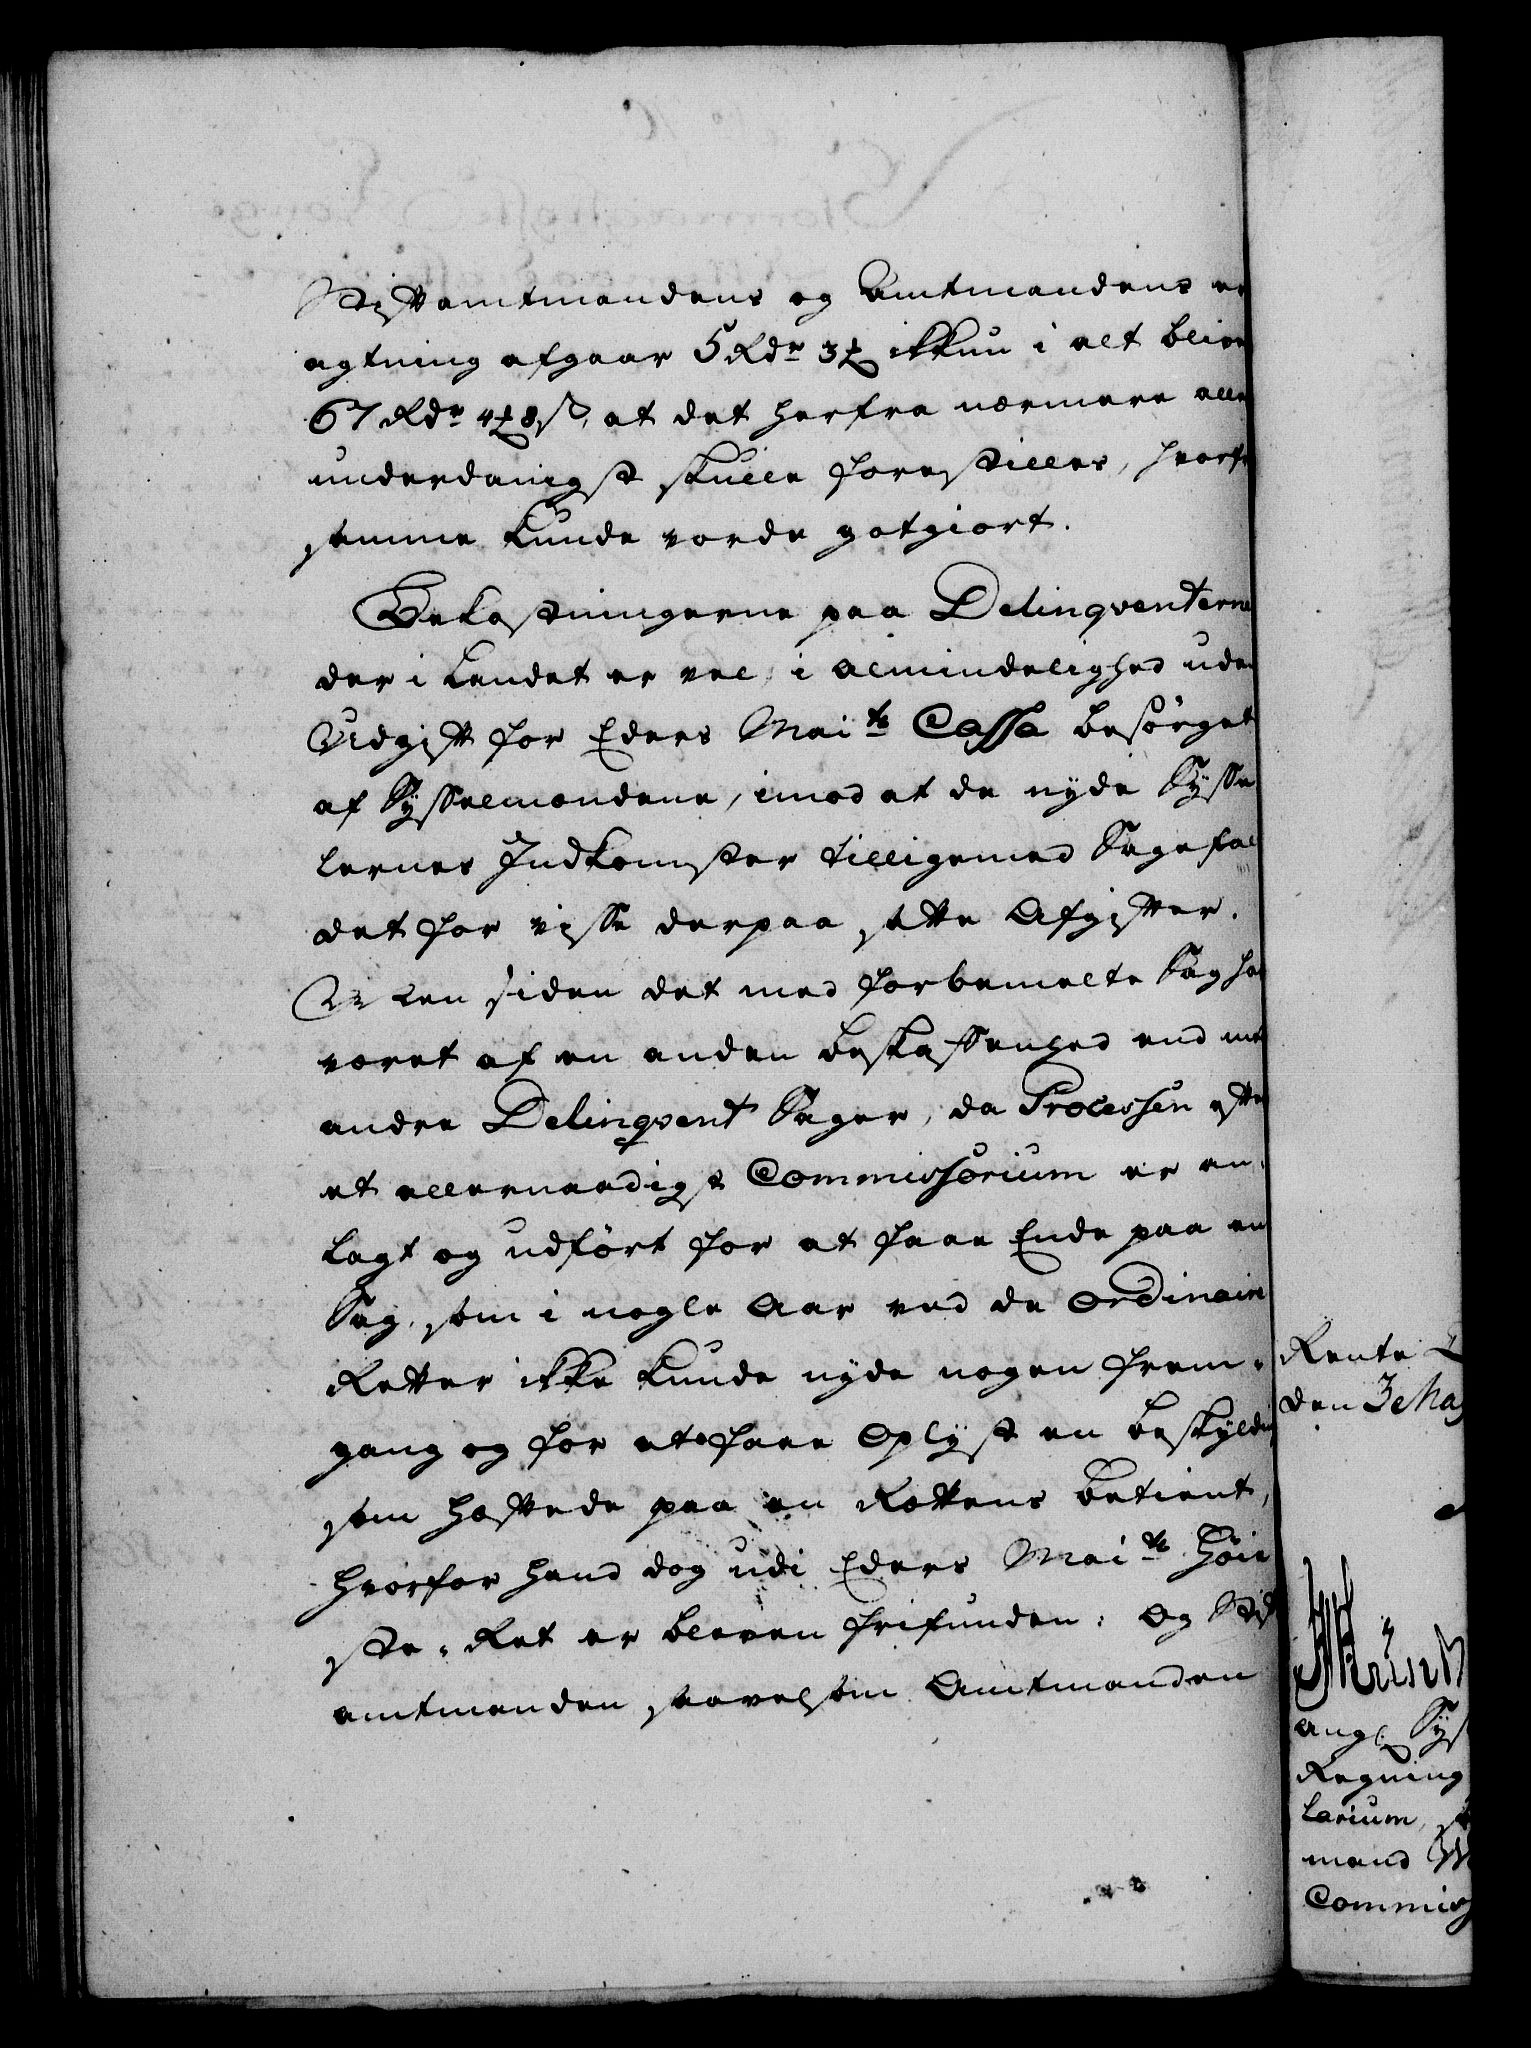 Stiftamtmandens og Amtmandens er
agtning afgaar 5 Rdr 3 ikkun i alt bliver
67 Rdr 4 8 ß, at det herfra nærmere aller
underdanigst skulle forestilles, hvorfra
samme kunde vorde gotgiort.
Bekostningerne paa Delinqventerne
der i Landet er vel i almindelighed uden
Udgift for Eders Maits Cassa besørget
af Sysselmændene, imod at de nyde Sysse
lernes Indkomster tilligemed Sagefal
det for visse derpaa satte Afgifter.
Men siden det med forbemelte Sag har
været af en anden beskaffenhed end med
andre Delinqvent Sager, da Processen efter
et allernaadigst Commissorium er an-
lagt og udført for at faae Ende paa en
Sag, som i nogle Aar ved de ordinaire
Retter ikke kunde nyde nogen frem-
gang og for at faae oplyst en beskylding
som hæftede paa en Rettens betient,
hvorfor hand dog udi Eders Maits Høie
ste-Ret er bleven frifunden: Og Stift
amtmanden saavelsom Amtmanden
Rente
den 3e Maj
ang: Sys
Regning
larium,
mand
Commiss